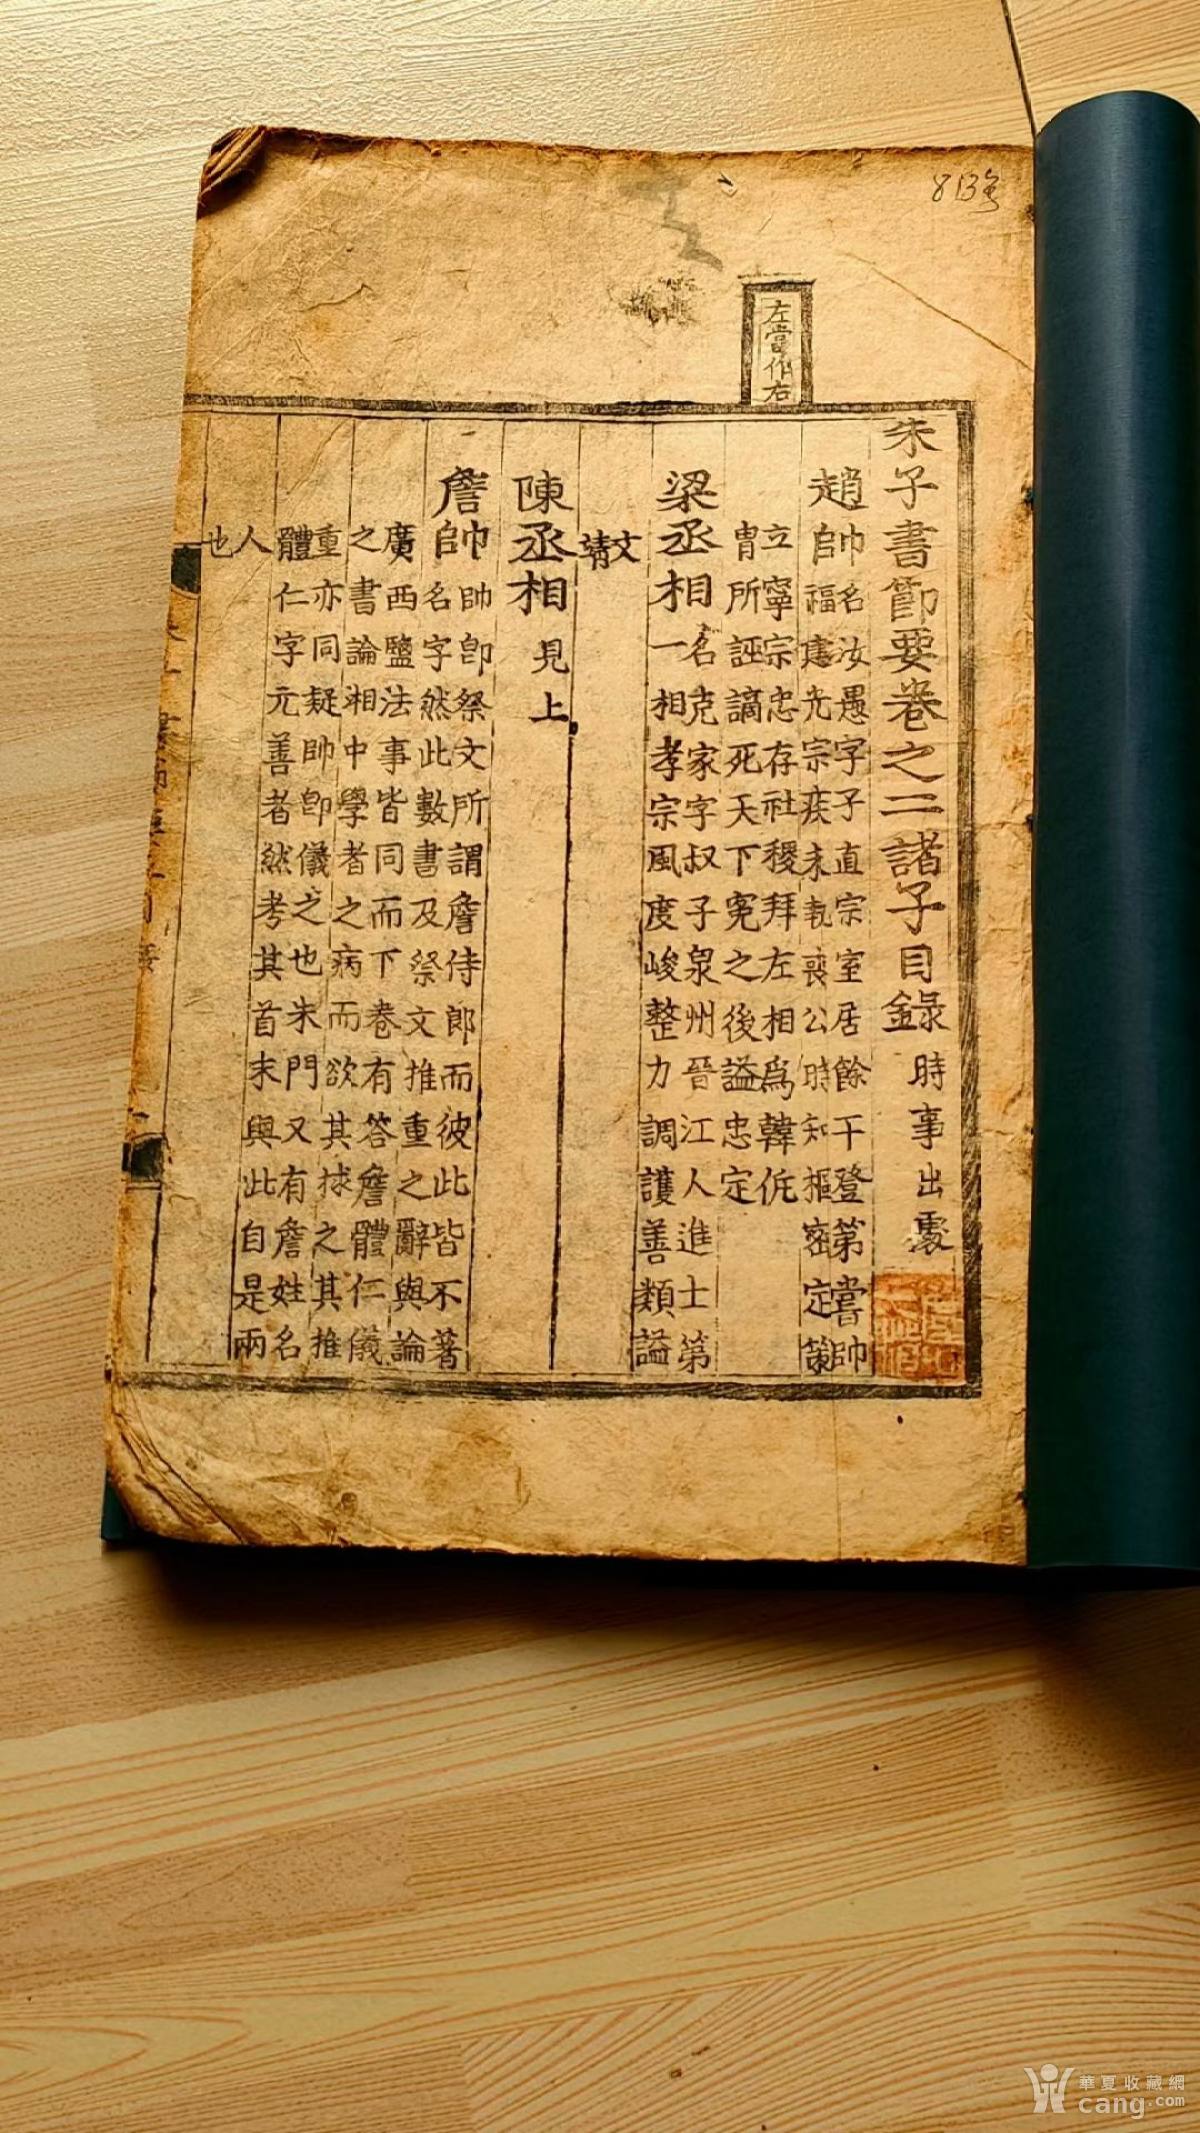 左當作右
朱子書節要卷之二諸子目錄 時事出處
趙帥 名汝愚字子直宗室居餘干登第嘗帥
福建光宗疾未執喪公時知樞密定策
立寧宗忠存社稷拜左相爲韓侂
冑所誣謫死天下寃之後謚忠定
梁丞相 名克家字叔子泉州晉江人進士第
一相孝宗風度峻整力調護善類謚
文
靖
陳丞相 見上
詹帥 帥卽祭文所謂詹侍郎而彼此皆不著
名字然此數書及祭文推重之辭與論
廣西鹽法事皆同而下卷有答詹體仁儀
之書論湘中學者之病而欲其捄之其推
重亦同疑帥卽儀之也朱門又有詹姓名
體仁字元善者然考其首末與此自是兩
人
也
華夏收藏網
cang.com